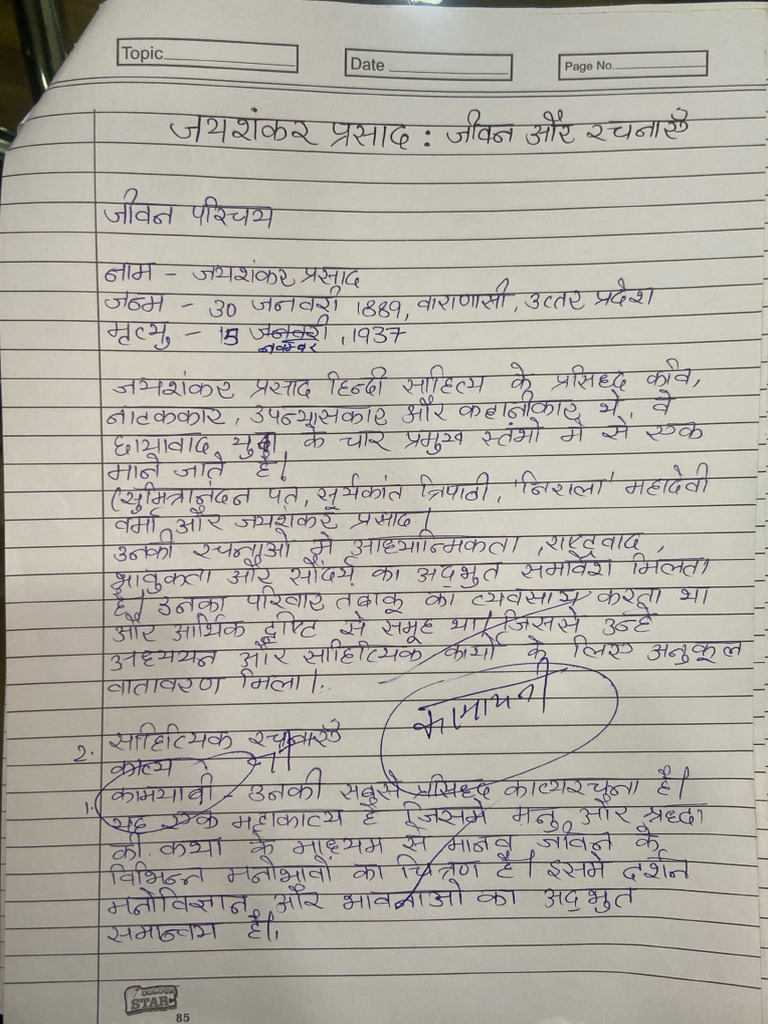 Topic
Date
Page No.
जयशंकर प्रसाद : जीवन और रचनाएँ
जीवन परिचय
नाम - जयशंकर प्रसाद
जन्म - 30 जनवरी 1889, वाराणसी, उत्तर प्रदेश
मृत्यु - 15 जनवरी, 1937
नवम्बर
जयशंकर प्रसाद हिन्दी साहित्य के प्रसिध्द कवि,
नाटककार, उपन्यासकार और कहानीकार थे, वे
छायावाद युग के चार प्रमुख स्तंभो मे से एक
माने जाते है।
(सुमित्रानंदन पंत, सूर्यकांत त्रिपाठी, 'निराला' महादेवी
वर्मा और जयशंकर प्रसाद।
उनकी रचनाओ मे आध्यात्मिकता, राष्ट्रवाद,
भावुकता और सौंदर्य का अदभुत समावेश मिलता
है। उनका परिवार तंबाकू का व्यवसाय करता था
और आर्थिक दृष्टि से समृध्द था। जिससे उन्हे
अध्ययन और साहित्यिक कार्यो के लिए अनुकूल
वातावरण मिला।
कामायनी
2. साहित्यिक रचनाएँ
काव्य :
1. कामयाबी - उनकी सबसे प्रसिध्द काव्यरचना है।
यह एक महाकाव्य है जिसमे मनु और श्रध्दा
की कथा के माध्यम से मानव जीवन के
विभिन्न मनोभावो का चित्रण है। इसमे दर्शन
मनोविज्ञान और भावनाओ का अदभुत
समान्वय है।
COLOUR STAR
85